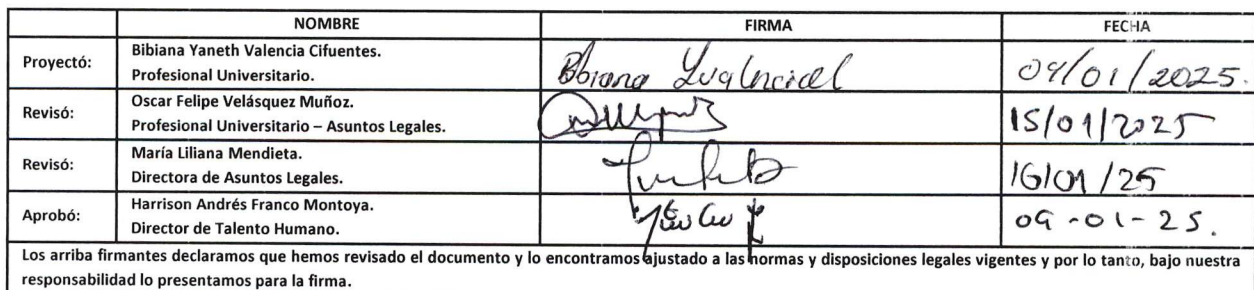 NOMBRE FIRMA FECHA
Proyectó: Bibiana Yaneth Valencia Cifuentes.
Profesional Universitario. Bibiana 09/01/2025.
Revisó: Oscar Felipe Velásquez Muñoz.
Profesional Universitario – Asuntos Legales. 15/01/2025
Revisó: María Liliana Mendieta.
Directora de Asuntos Legales. 16/01/25
Aprobó: Harrison Andrés Franco Montoya.
Director de Talento Humano. 09-01-25.
Los arriba firmantes declaramos que hemos revisado el documento y lo encontramos ajustado a las normas y disposiciones legales vigentes y por lo tanto, bajo nuestra
responsabilidad lo presentamos para la firma.